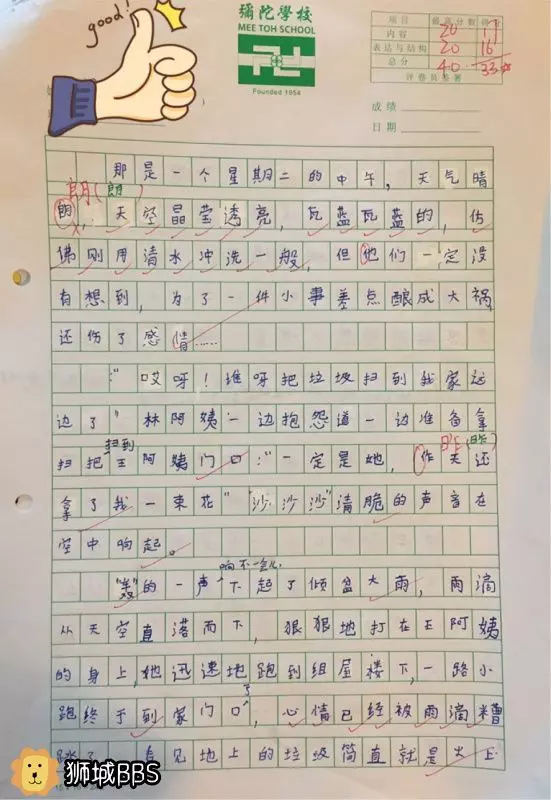 good!
彌陀學校
MEE TOH SCHOOL
Founded 1954
项目 最高分数 得分
内容 20 17
表达与结构 20 16
总分 40 33
评卷员签署
成绩
日期
那是一个星期二的中午，天气晴
朗（朗）
朗，天空晶莹透亮，瓦蓝瓦蓝的，仿
佛刚用清水冲洗一般，但他们一定没
有想到，为了一件小事差点酿成大祸
还伤了感情……
“哎呀！谁呀把垃圾扫到我家这
边了”林阿姨一边抱怨道一边准备拿
扫到
昨（昨）
扫把王阿姨门口：“一定是她，作天还
拿了我一束花”“沙沙沙”清脆的声音在
空中响起。
响不一会儿，
的一声下起了倾盆大雨，雨滴
从天空直落而下，狠狠地打在王阿姨
的身上，她迅速地跑到组屋楼下，一路小
了
跑终于到家门口，心情已经被雨滴糟
蹋了，看见地上的垃圾简直就是火上
狮城BBS